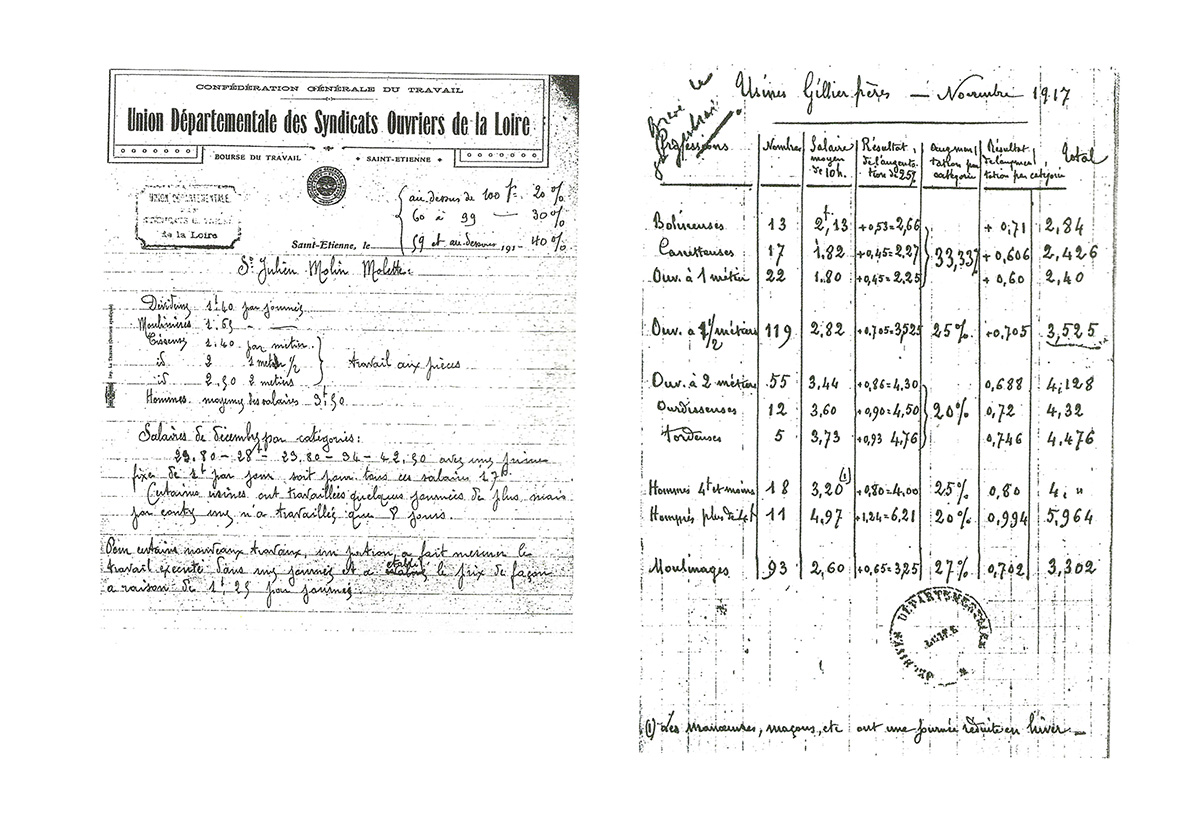 CONFÉDÉRATION GÉNÉRALE DU TRAVAIL
Union Départementale des Syndicats Ouvriers de la Loire
BOURSE DU TRAVAIL SAINT-ETIENNE
UNION DÉPARTEMENTALE
de la Loire
au dessus de 100 f. 20 %
60 à 99 — 30 %
59 et au dessous 40 %
Saint-Etienne, le 191-
St Julien Molin Molette :
1f40 par journée
Moulinières 1.65 - —
Tisseuses 1.40 par métier
id 2 1 métier 1/2
id 2.50 2 métiers
travail aux pièces
Hommes moyenne des salaires 3f50
Salaires de décembre par catégories :
23.80 - 28f - 29.80 - 34 - 42.50 avec une prime
fixe de 1f par jour soit pour tous ces salaires 17f
Certaines usines ont travaillées quelques journées de plus, mais
par contre une n'a travaillée que 8 jours.
Pour certains nouveaux travaux, un patron, a fait mesurer le
travail executé dans une journée et a établi le prix de façon
a raison de 1f.25 par journée
Imp. La Travail (Ouvriers syndiqués)
Usines Gillier frères — Novembre 1917
Professions Nombres Salaire moyen de 10h. Résultat de l'augmentation de 25% augmentation par catégorie Résultat de l'augmentation par catégorie Total
Bobineuses 13 2f,13 +0,53=2,66 + 0,71 2,84
Canetteuses 17 1.82 +0,45=2,27 33,33% + 0,606 2,426
Ouv. à 1 métier 22 1.80 +0,45=2,25 + 0,60 2,40
Ouv. à 1 1/2 métiers 119 2,82 +0,705=3,525 25% +0,705 3,525
Ouv. à 2 métiers 55 3,44 +0,86=4,30 0,688 4,128
Ourdisseuses 12 3,60 +0,90=4,50 20% 0,72 4,32
Tordeuses 5 3,73 +0,93 4,76 0,746 4,476
Hommes 4f et moins 18 3,20 (1) +0,80=4,00 25% 0,80 4, "
Hommes plus de 4f 11 4,97 +1,24=6,21 20% 0,994 5,964
Moulinages 93 2,60 +0,65=3,25 27% 0,702 3,302
DÉPARTEMENTALE
LOIRE
(1) Les manœuvres, maçons, etc ont une journée réduite en hiver —